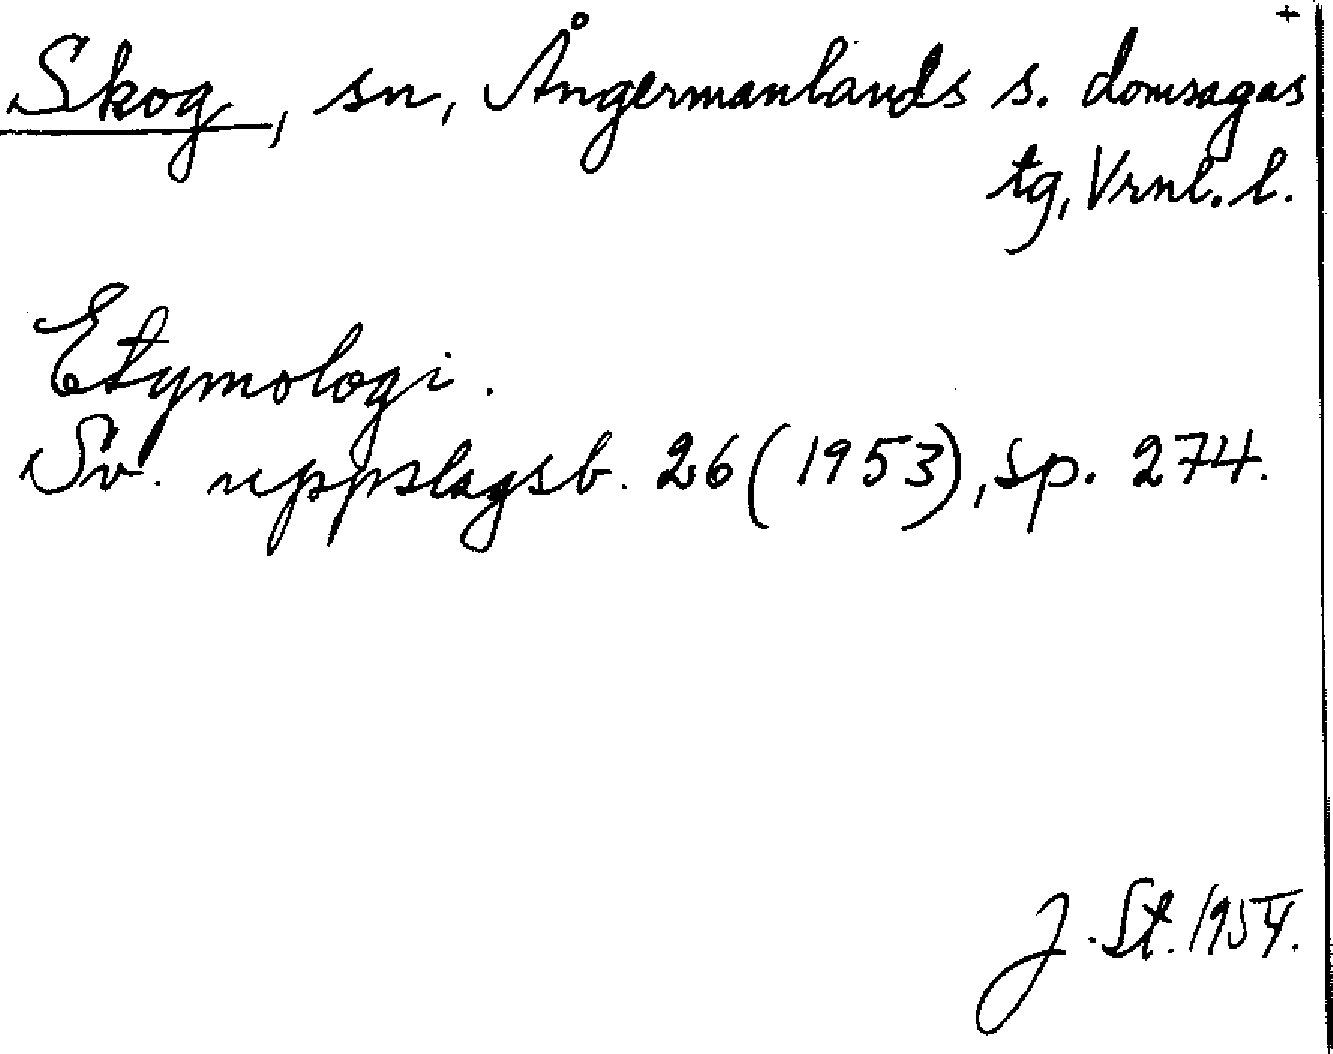 +
Skog, sn, Ångermanlands s. domsagas
tg, Vrnl. l.
Etymologi.
Sv. uppslagsb. 26 (1953), sp. 274.
J. St. 1954.